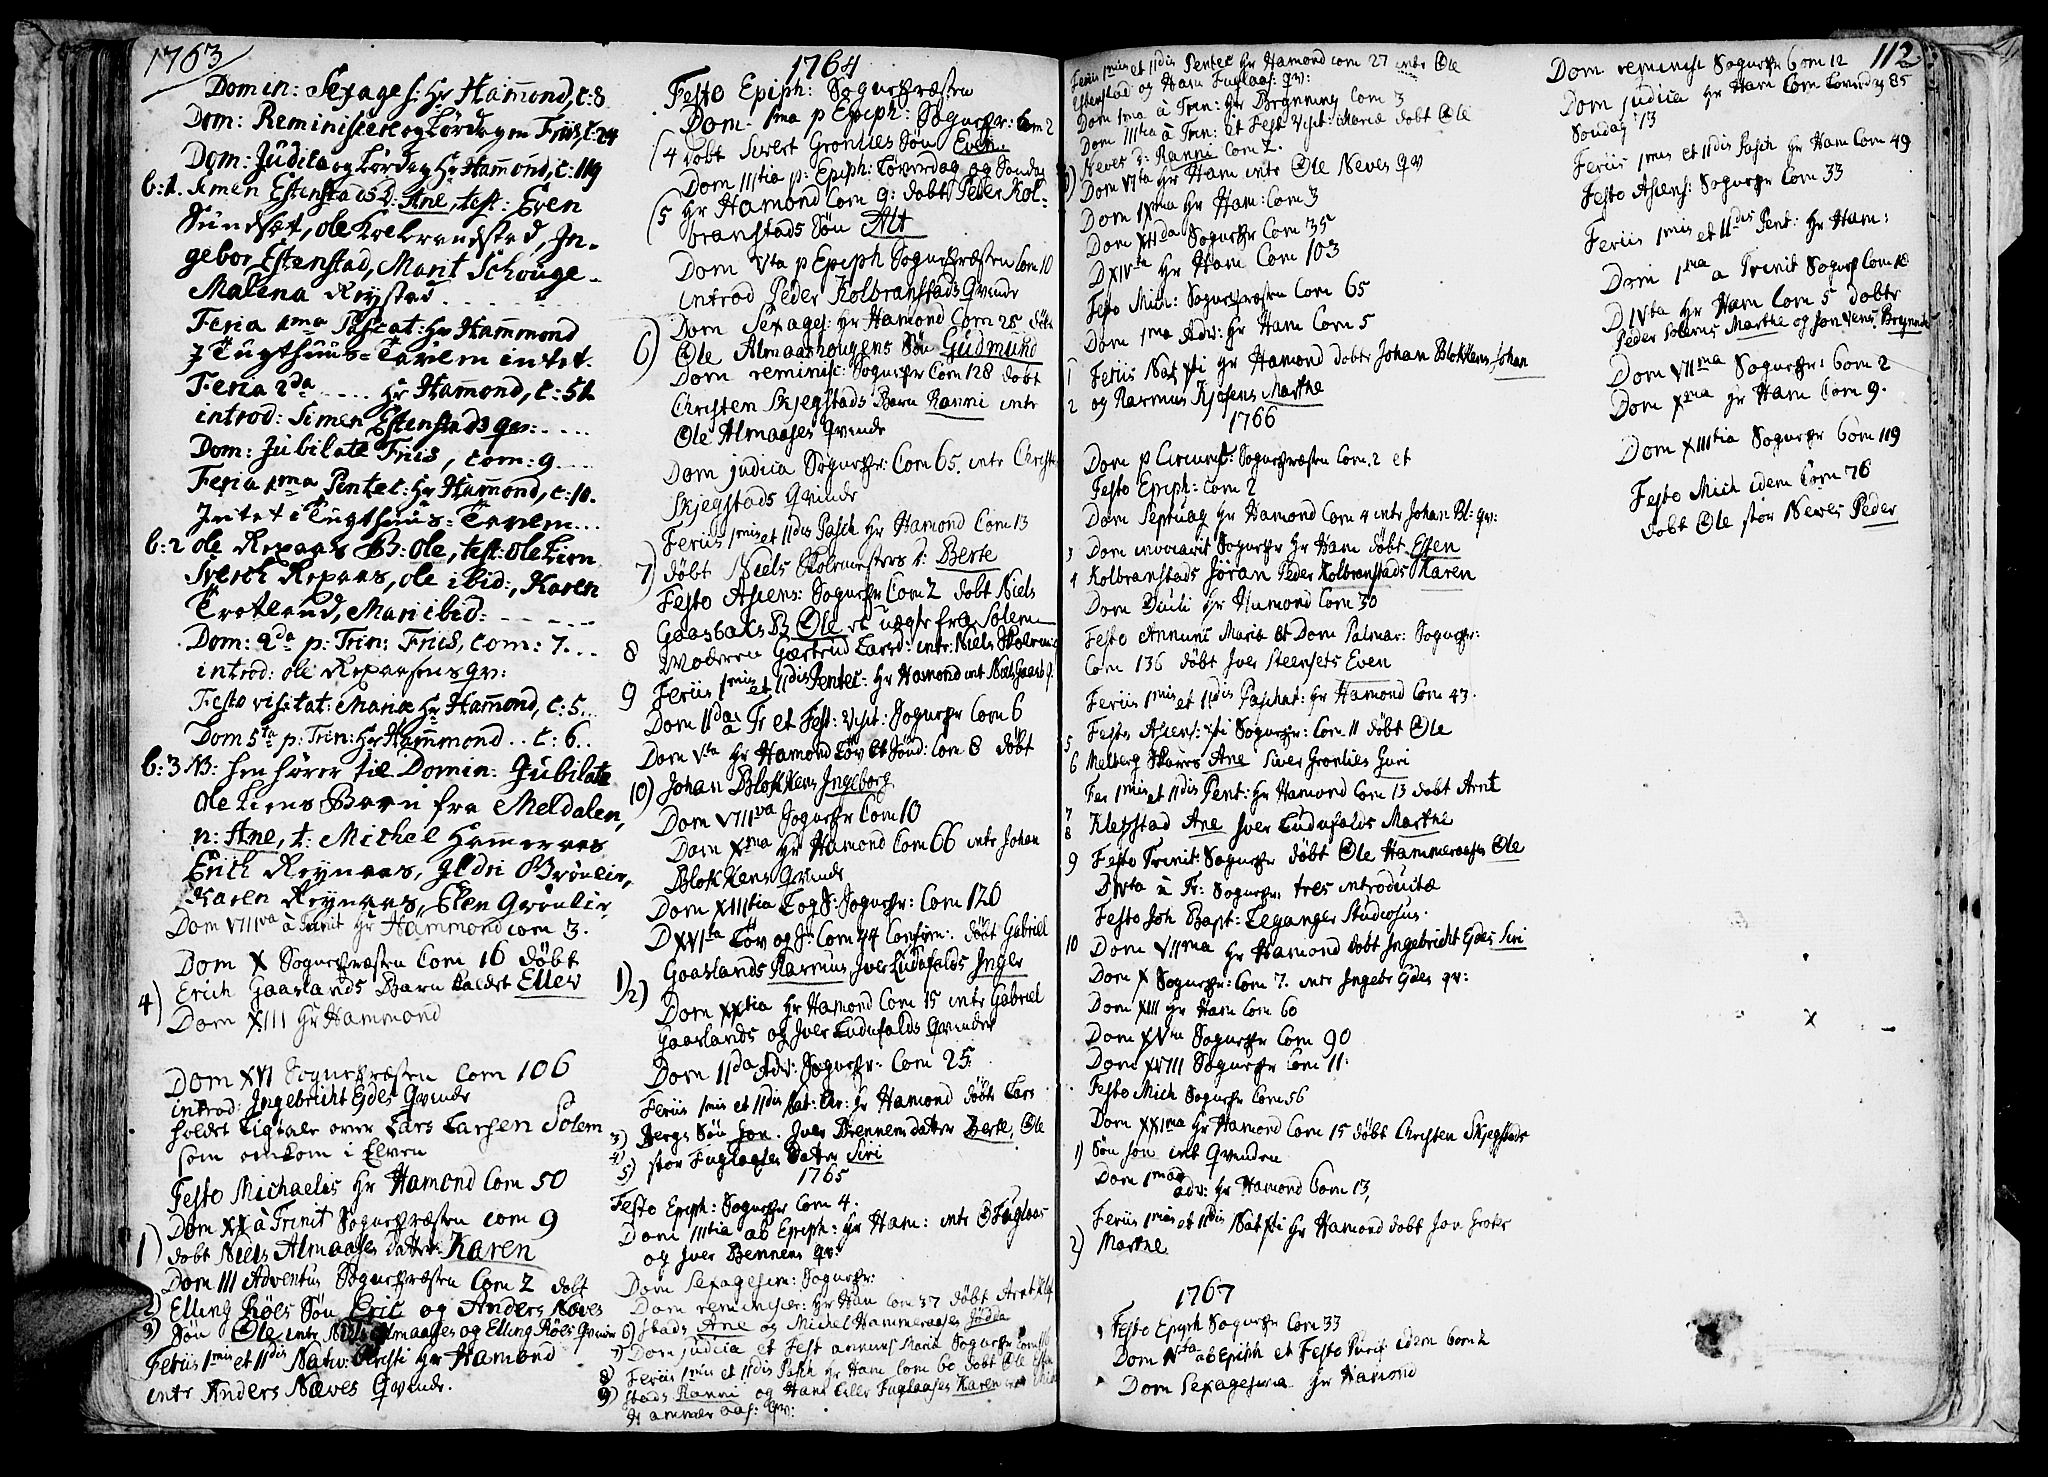 1763
Domin: Sexages: Hr Hammond, C: 8
Dom: Reminiscere og Lördagen Friis, C: 24
Dom: Judica og Lördag Hr Hammond, C: 119
b: 1. Simen Estenstads D: Ane, test: Even
Sundset, Ole Kolbrandstad, In-
gebor Estenstad, Marit Schouge-
Malena Reystad
Feria 1ma Pascat: Hr Hammond
J Tugthuus-Tavlen intet.
Feria 2da ... Hr Hammond, C: 51
introd: Simen Estenstads qv:
Dom: Jubilate Friis, Com: 9
Feria 1ma Pentec: Hr Hammond, C: 10.
Intet i Tugthuus-Tavlen...
b: 2 Ole Repaas B: Ole, test: Ole Lien
Sverch Repaas, Ole ibid:, Karen
Trotland, Mari ibid:
Dom: 2da p: Trin: Friis, Com: 7...
introd: Ole Repaasens qv:
Festo visitat: Mariæ Hr Hammond, C: 5..
Dom 5ta p: Trin: Hr Hammond .. C: 6..
b: 3 NB: hen hörer til Domin: Jubilate
Ole Liens Barn fra Meldalen,
n: Ane, t: Michel Hammeraas
Erich Reynaas, Ildri Brönlie,
Karen Reynaas, Elen Grönlie
Dom VIIIva à Trinit Hr Hammond Com 3.
Dom X Sognepræsten Com 16 döbt
4) Erich Gaaslands Barn kaldet Ellev
Dom XIII Hr Hammond
Dom XVI Sognepræsten Com 106
introd: Ingebricht Eides Qvinde
holdet Ligtale over Lars Larsen Solem
som omkom i Elven
Festo Michaelis Hr Hamond Com 50
Dom XX à Trinit Sognepræsten Com 9
1) döbt Niels Almaases datter Karen
Dom III Adventus Sognepræsten Com 2 döbt
2) Elling Röes Sön Eric og Anders Næves
3) Sön Ole intr Niels Almaases og Elling Röes Qvinde
Feriis 1mis et 11dis Nativ: Christi Hr Hamond
intr Anders Næves Qvinde.
1764
Festo Epiph: Sognepræsten
Dom 1ma p Epiph: Sognepr: Com 2
(4 döbt Sivert Grönlies Sön Even
Dom IIItia p: Epiph: Löverdag og Sondag
(5 Hr Hamond Com 9: döbt Peder Kol-
branstads Sön Alt
Dom Vta p Epiph Sognepræsten Com 10
introd Peder Kolbranstads Qvinde
Dom Sexages: Hr Hamond Com 25 döbt
6) Ole Almaashougens Sön Gudmund
Dom reminisc: Sognepr Com 128 döbt
Christen Skjegstads Barn Ranni intr
Ole Almaases Qvinde
Dom judica Sognepr: Com 65. intr Christen
Skjegstads Qvinde
Feriis 1mis et 11dis Pasch Hr Hamond Com 13
7) döbt Niels Skolemesters d: Berte
Festo Asiens: Sognepr Com 2 döbt Niels
Gaasbaks B Ole et uægte fra Solem
8 Moderen Giertrud Larsd: intr: Niels Skolem
9 Feriis 1mis et 11dis Pentec: Hr Hamond int Niels Gaasb
Dom 11da à Tr et Fest: visit: Sognepr Com 6
Dom Vta Hr Hamond Löv et Sönd: Com 8 döbt
10) Johan Blokkens Ingeborg
Dom VIIIva Sognepr Com 10
Dom Xma Hr Hamond Com 66 intr Johan
Blokkens Qvinde
Dom XIIItia L og S: Sognepr: Com 120
D XVIta Löv og S: Com 44 Confirm: döbt Gabriel
1) Gaaslands Rasmus Iver Ludufalds Inger
2) Dom XXtia Hr Hamond Com 15 intr Gabriel
Gaaslands og Iver Ludufalds Qvinder
Dom 11da Adv: Sognepr: Com 25
Feriis 1mis et 11dis Nat: Chr: Hr Hamond döbt Lars
3) Bergs Sön Jon. Iver Brennes datter Berte, Ole
4) 5) stor Fuglaases datter Siri
1765
Festo Epiph: Sognepr Com 4.
Dom IIItia ab Epiph: Hr Ham: intr O Fuglaas
og Iver Bennens qv:
Dom Sexagesim: Sognepr:
Dom reminiscer: Hr Ham Com 37 döbt Arnt Klef
6) stads Ane og Michel Hammeraases Gjödda
7) Dom judica et Fest annunc Mariæ Sognepr Com
8 Feriis 1mis et 11dis Pasch Hr Ham Com 60 döbt Ole
9) stads Ranni og Hans Lille Fuglaases Karen
Hammeraas: qv:
Feriis 1mis et 11dis Pentec Hr Hamond Com 27 intr Ole
Estenstad og Hans Fuglaas: qv:
Dom 1ma à Trin: Hr Brynning Com 3
Dom IIItia à Trin: et Fest visit: Mariæ döbt Ole
Neves d: Ranni Com 2.
Dom VIta Hr Ham intr Ole Neves qv
Dom IXma Hr Ham: Com 3
Dom XIIda Sognepr Com 35
D XIVta Hr Ham Com 103
Festo Mich: Sognepræsten Com 65
Dom 1ma Adv: Hr Ham Com 5
1 Feriis Nat Xti Hr Hamond döbt Johan Blokkens Johan
2 og Rasmus Kjosens Marthe
1766
Dom p Circumc: Sognepræsten Com. 2 et
Festo Epiph: Com 2
Dom Septuag Hr Hamond Com 4 intr Johan Bl: qv:
3 Dom invocavit Sognepr Hr Ham döbt Esten
4 Kolbranstads Jöran Peder Kolbranstads Karen
Dom Oculi Hr Hamond Com 30
Festo Annunc Mariæ et Dom Palmar: Sognepr:
Com 136 döbt Iver Steensets Even
Feriis 1mis et 11dis Paschat: Hr Hamond Com 43.
5 Festo Asiens: Xti Sognepr: Com 11 döbt Ole
6 Melberg Skaves Ane Siver Gronlies Guri
Fer 1mis et 11dis Pent: Hr Hamond Com 13 döbt Arnt
7
8 Klefstad Ane Iver Ludufalds Marthe
9 Festo Trinit: Sognepr döbt Ole Hammeraases Ole
D IVta à Tr: Sognepr. tres introductæ
Festo Joh Bapt: Leganger Studiosus.
10 Dom VIIma Hr Hamond döbt Ingebricht Eides Siri
Dom X Sognepr: Com 7. intr Ingebr Eides qv:
Dom XIII Hr Ham Com 60
Dom XVta Sognepr Com 90
Dom XVIII Sognepr Com 11:
Festo Mich Sognepr Com 56
Dom XXIma Hr Hamond Com 15 döbt Christen Skjegstads
1) Sön Jon int Qvinden
Dom 1ma adv: Hr Hamond Com 13,
Feriis 1mis et 11dis Nat Xti Hr Hamond döbt Jon Grotes
2) Marthe
1767
Festo Epiph Sognepr Com 33
Dom IVta ab Epiph et Festo Purif: idem Com 2
Dom Sexagesima Hr Hamond
112
Dom reminisc Sognepr Com 12
Dom judica Hr Ham Com Lovordag 85
Sondag 13
Feriis 1mis et 11dis Pasch Hr Ham Com 49
Festo Asiens: Sognepr Com 33
Feriis 1mis et 11dis Pent: Hr Ham:
Dom 1ma a Trinit Sognepr Com 18
D IVta Hr Ham Com 5 döbte
Peder Solems Marthe og Jon Vens: Brynnild
Dom VIIma Sognepr: Com 2
Dom Xma Hr Ham Com 9.
Dom XIIItia Sognepr Com 119
Festo Mich idem Com 76
döbt Ole stor Neves Peder